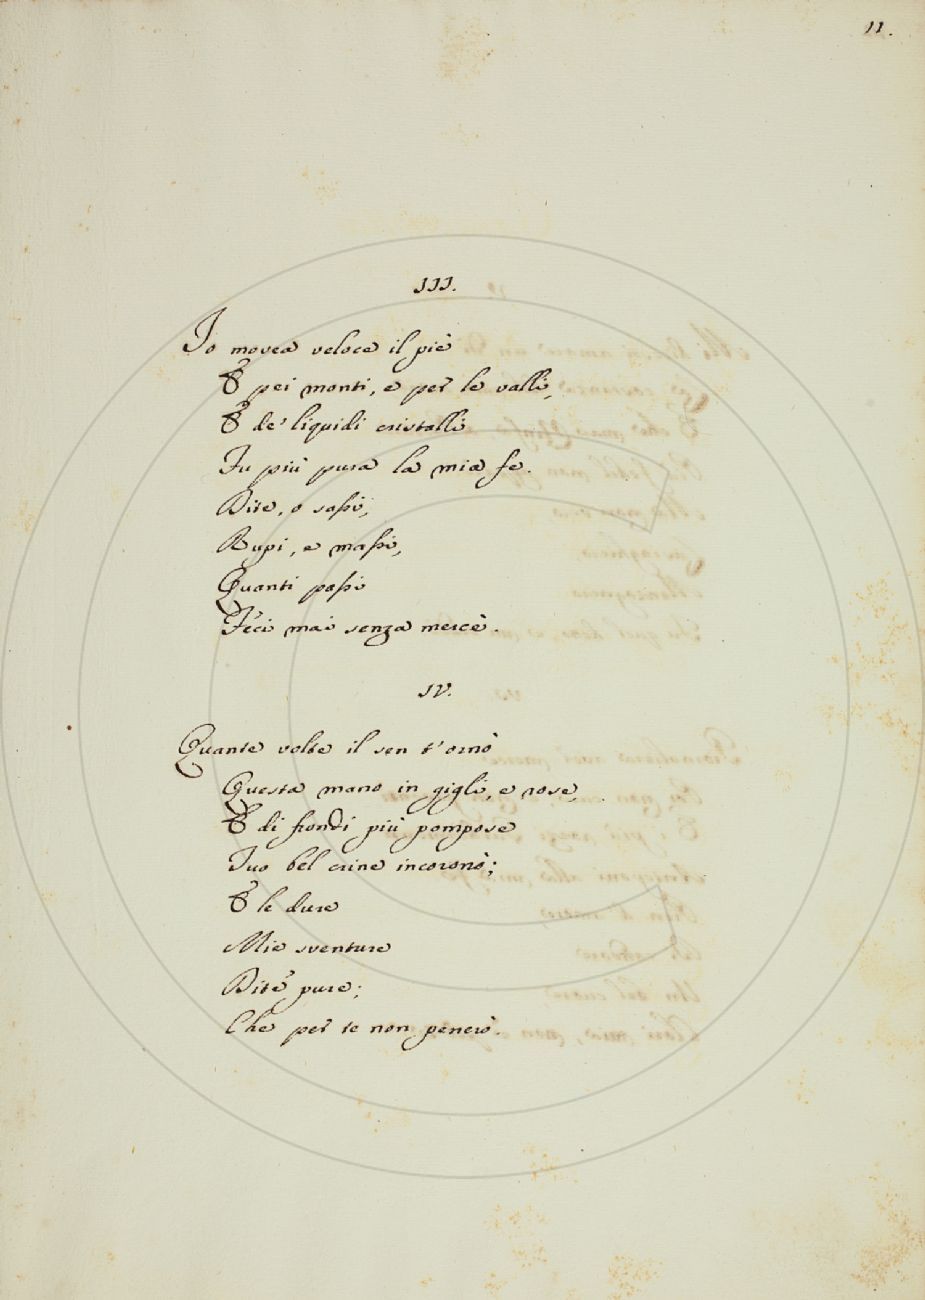 11.
III.
Io movea veloce il piè
E pei monti, e per le valli,
E de' liquidi cristalli
Fu più pura la mia fe.
Dite, o sassi,
Rupi, e massi,
Quanti passi
Feci mai senza mercè.
IV.
Quante volte il sen t'ornò
Questa mano in gigli, e rose,
E di frondi più pompose
Tuo bel crine incoronò;
E le dure
Mie sventure
Dite pure;
Che per te non penerò.